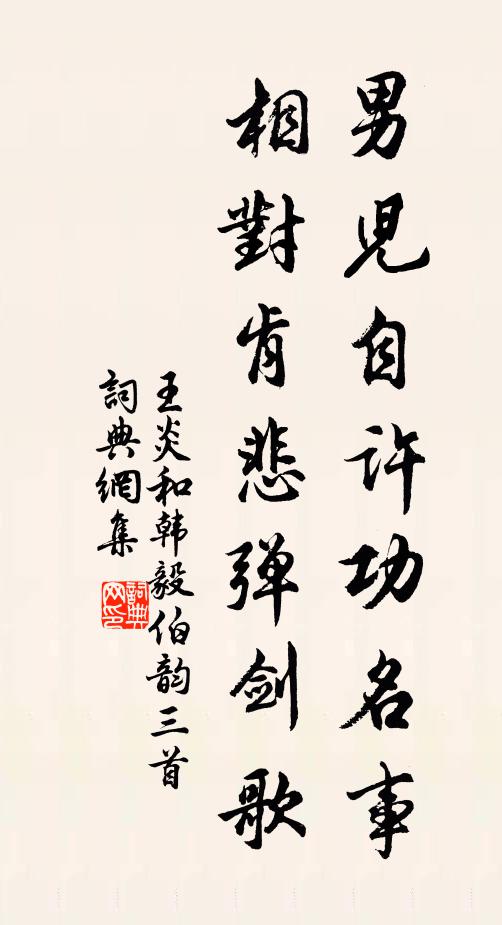 男兒自许功名事
相對肯悲弹剑歌
王炎和韩毅伯韵三首
詞典網集
詞典网印